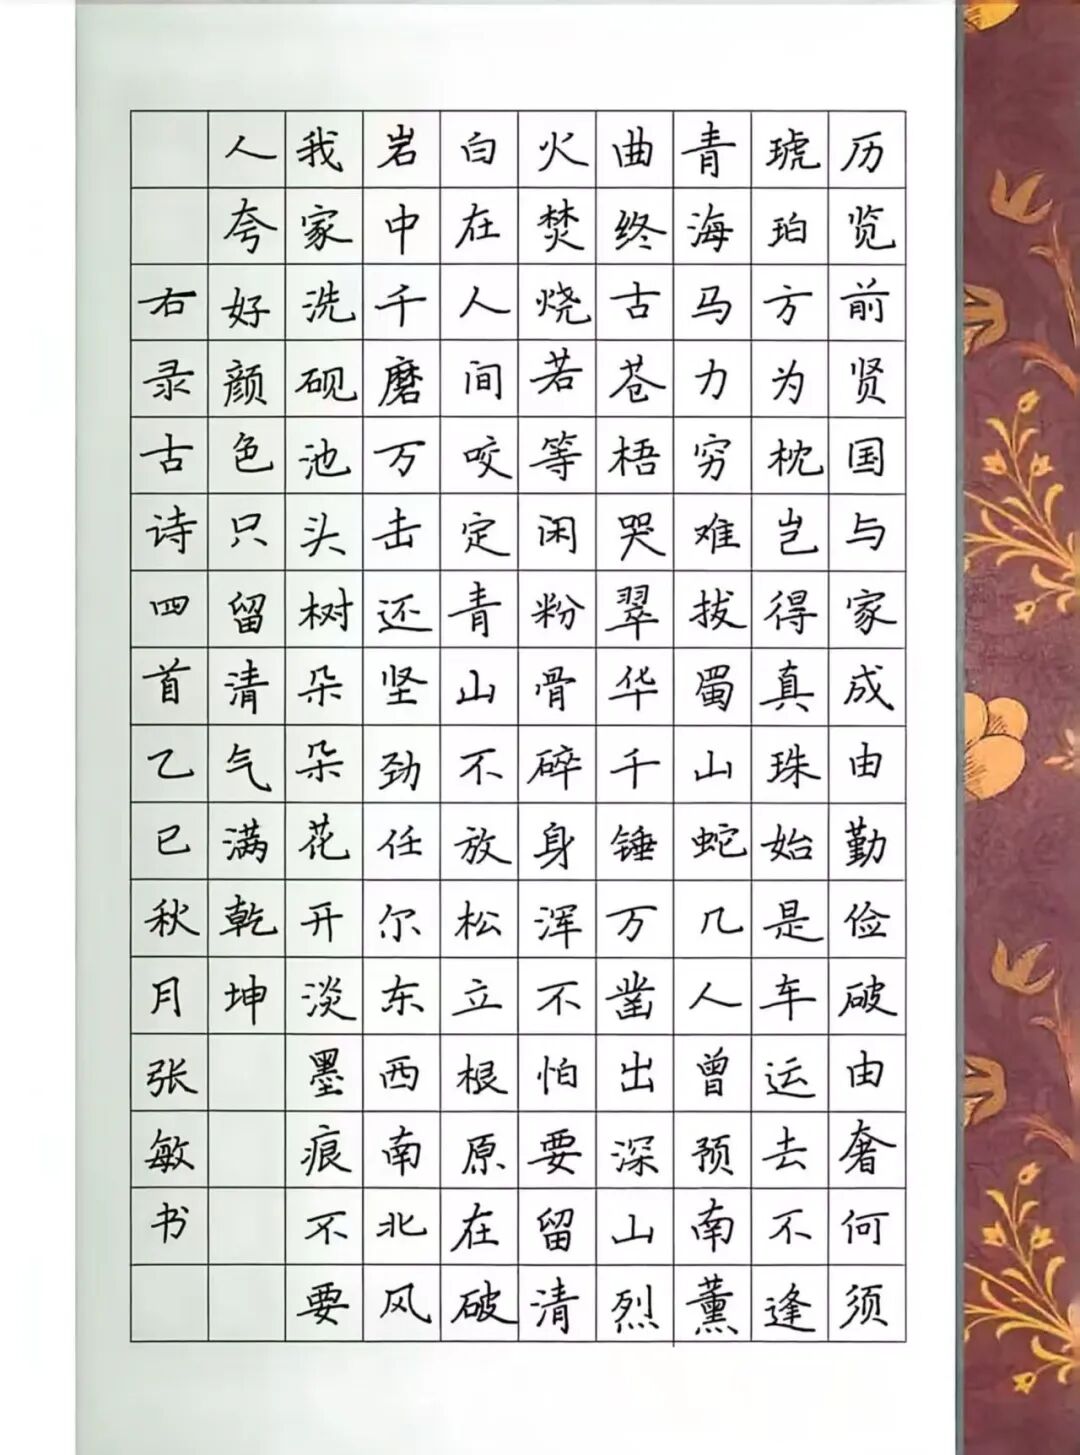 历览前贤国与家成由勤俭破由奢何须
琥珀方为枕岂得真珠始是车运去不逢
青海马力穷难拔蜀山蛇几人曾预南薰
曲终古苍梧哭翠华千锤万凿出深山烈
火焚烧若等闲粉骨碎身浑不怕要留清
白在人间咬定青山不放松立根原在破
岩中千磨万击还坚劲任尔东西南北风
我家洗砚池头树朵朵花开淡墨痕不要
人夸好颜色只留清气满乾坤
右录古诗四首乙巳秋月张敏书